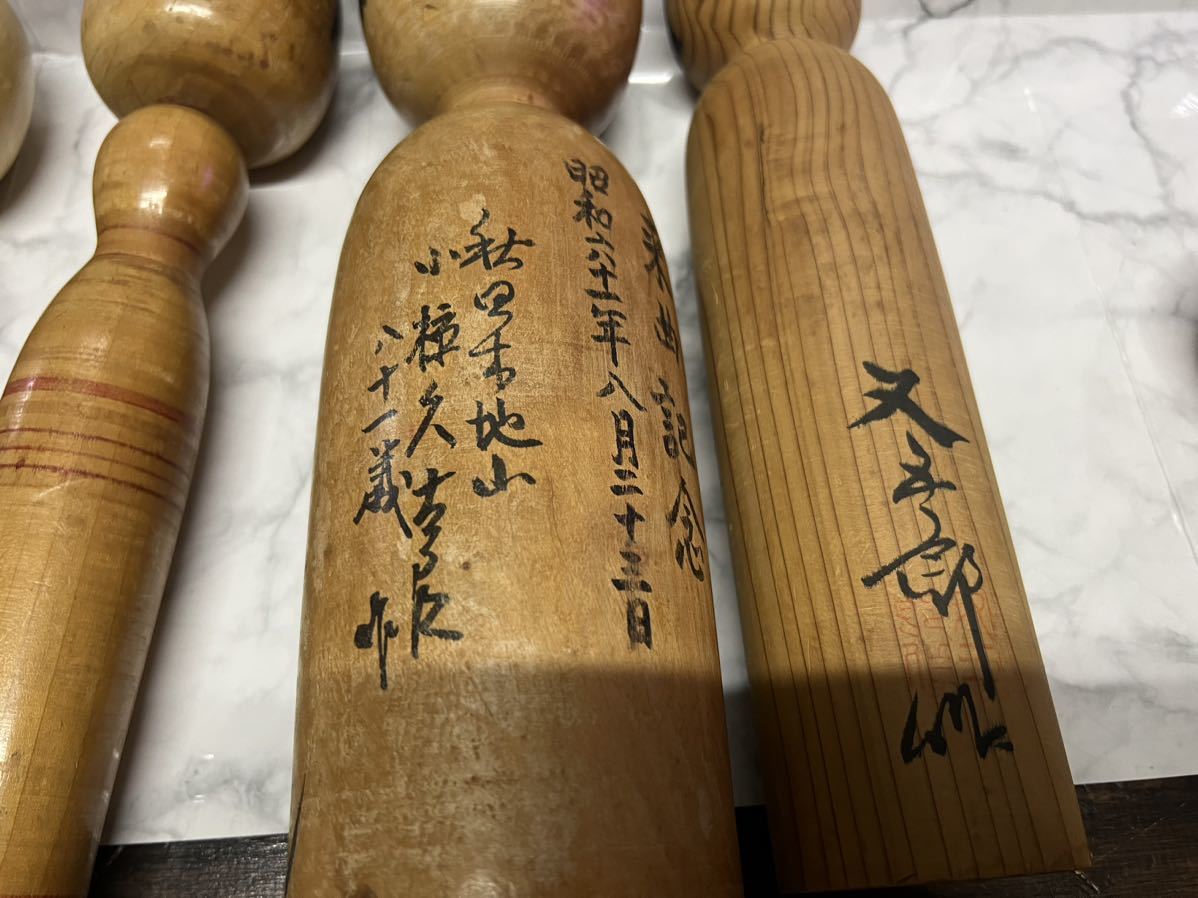 来曲記念
昭和六十一年八月二十三日
秋田木地山
小椋久太郎
八十一歳 作
又五郎作